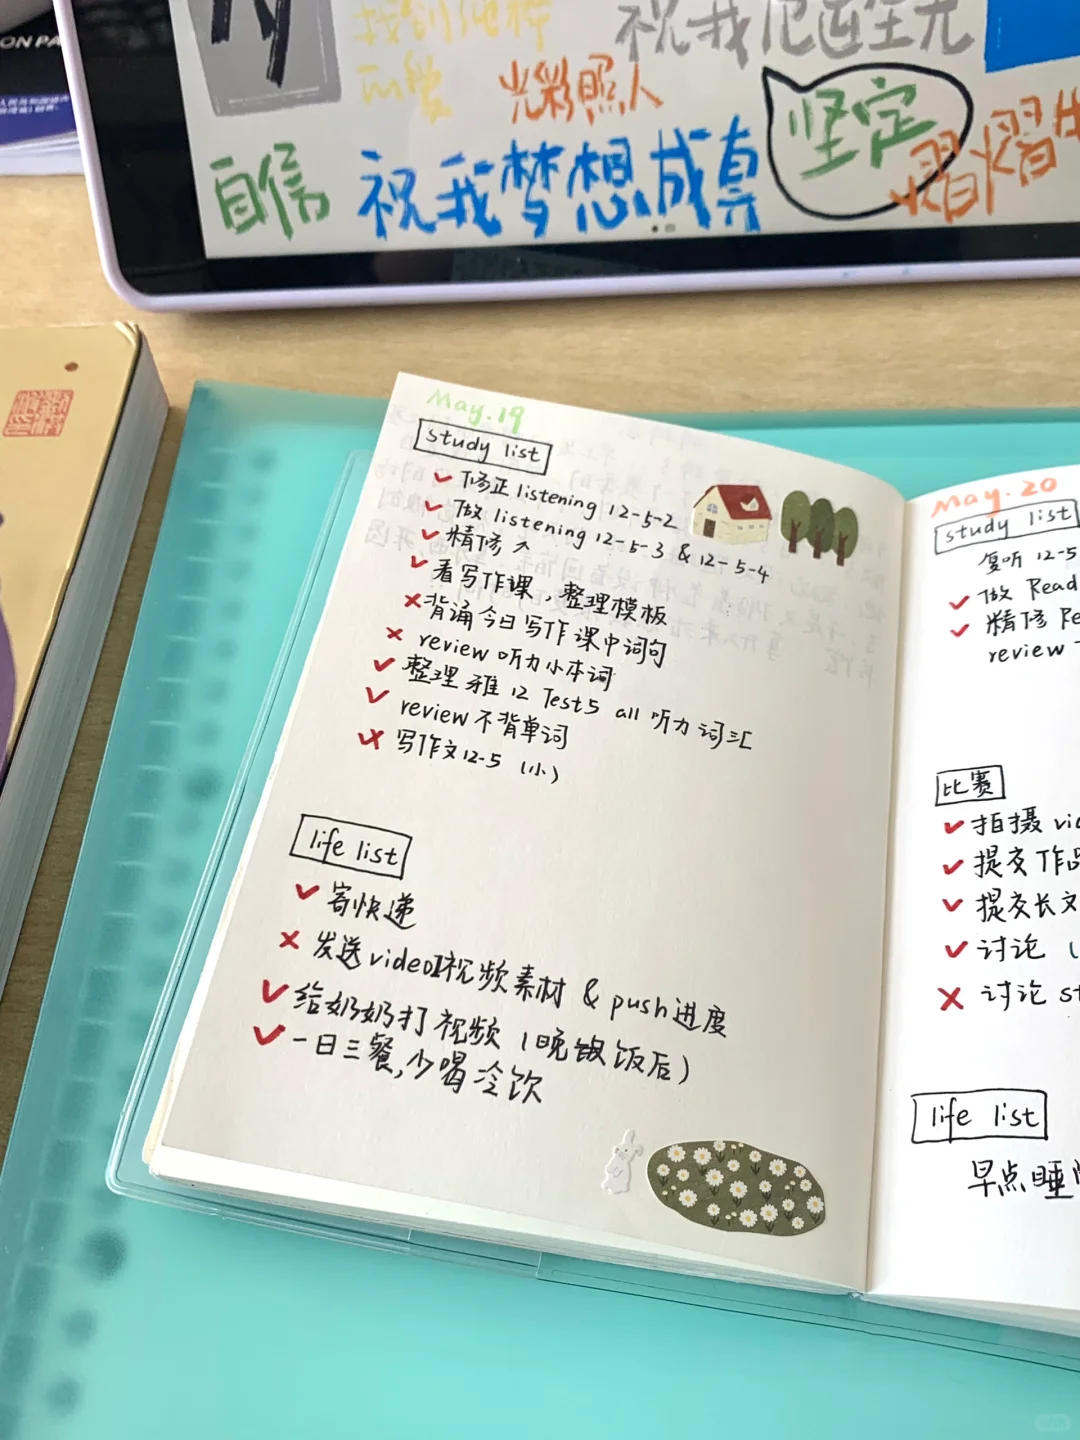 ON PA
找到纯粹
祝我
光彩照人
坚定
自信
祝我梦想成真
熠熠生
May.19
study list
修正 listening 12-5-2
做 listening 12-5-3 & 12-5-4
精修
看写作课，整理模板
背诵今日写作课中词句
review 听力小本词
整理 雅12 Test5 all 听力词汇
review 不背单词
写作文12-5（小）
life list
寄快递
发送video视频素材 & push进度
给奶奶打视频（晚饭饭后）
一日三餐，少喝冷饮
May.20
study list
复听 12-5
做 Read
精修 Re
review
比赛
拍摄 vi
提交作品
提交长文
讨论
讨论 st
life list
早点睡